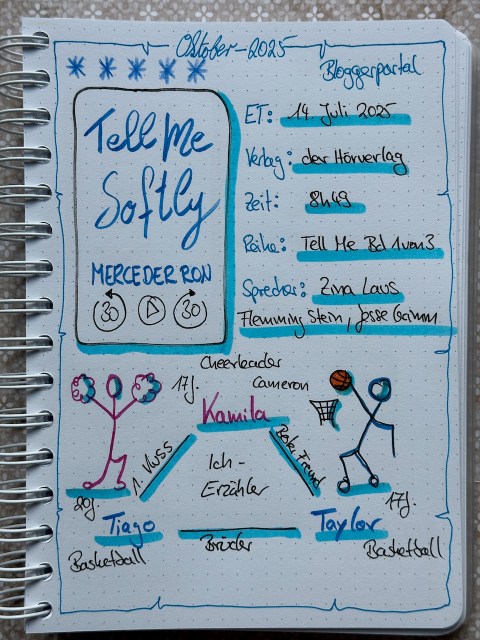 Oktober-2025
Bloggerportal
Tell Me
Softly
MERCEDER RON
30 30
ET: 14. Juli 2025
Verlag: der Hörverlag
Zeit: 8h49
Reihe: Tell Me Bd 1 von 3
Sprecher: Zina Laus
Flemming Stein, Jesse Grimm
Cheerleader
17J. Cameron
Kamila
1. Kuss
Bester Freund
Ich-
Erzähler
20J.
17J.
Tiago
Taylor
Brüder
Basketball
Basketball